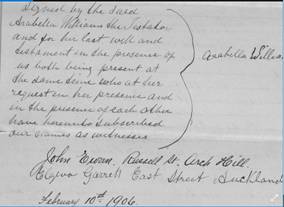 Signed by the said
Arabella Williams the Testator
and for her last will and
testament in the presence of
us both being present at
the same time who at her
request in her presence and
in the presence of each other
have hereunto subscribed
our names as witnesses
Arabella Willia
John Ewan, Russell St. Arch Hill
Garrett East Street Auckland
February 10th 1906